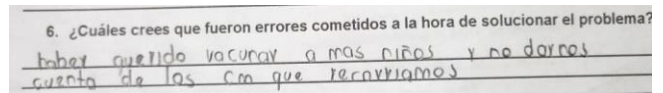 6. ¿Cuáles crees que fueron errores cometidos a la hora de solucionar el problema?
haber querido vacunar a mas niños y no darnos
cuenta de los cm que recorriamos